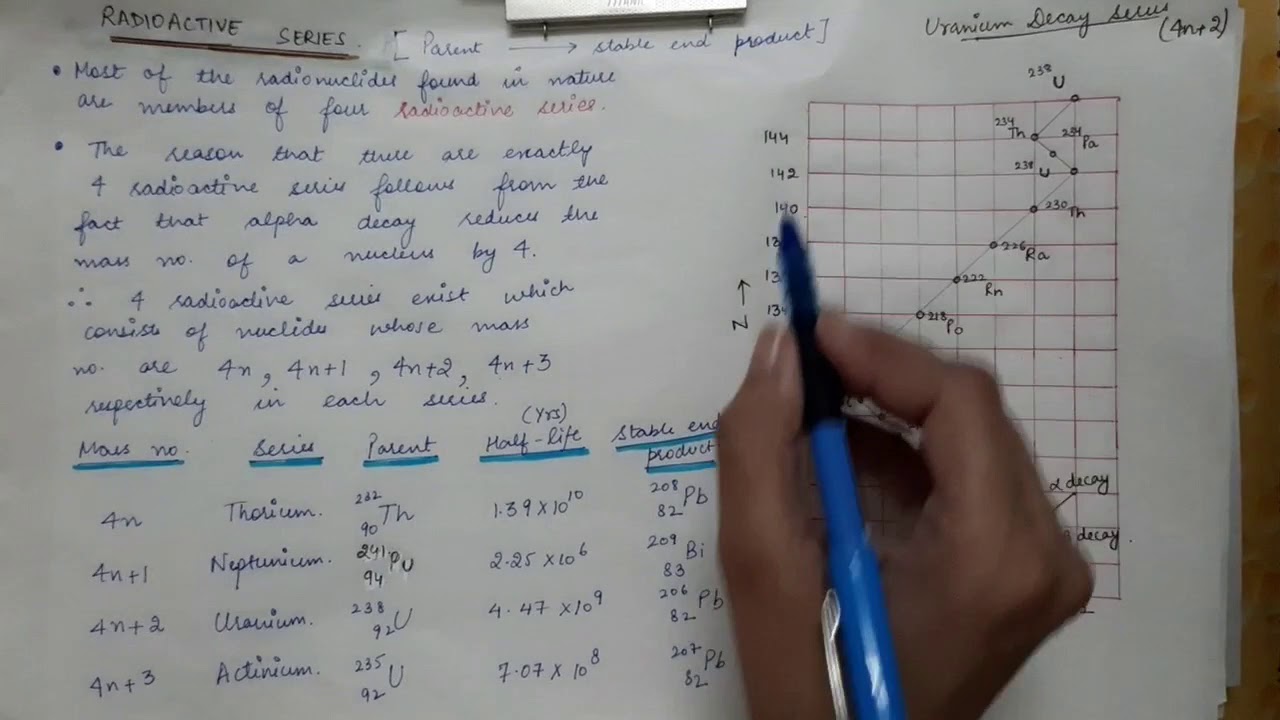 RADIOACTIVE SERIES. [Parent ⟶ stable end product]
• Most of the radionuclides found in nature
are members of four radioactive series.
• The reason that there are exactly
4 radioactive series follows from the
fact that alpha decay reduces the
mass no. of a nucleus by 4.
∴ 4 radioactive series exist which
consists of nuclide whose mass
no. are 4n, 4n+1, 4n+2, 4n+3
respectively in each series.
Mass no. Series Parent Half-life (Yrs) Stable end product
4n Thorium. ²³²₉₀Th 1.39 × 10¹⁰ ²⁰⁸₈₂Pb
4n+1 Neptunium. ²⁴¹₉₄Pu 2.25 × 10⁶ ²⁰⁹₈₃Bi
4n+2 Uranium. ²³⁸₉₂U 4.47 × 10⁹ ²⁰⁶₈₂Pb
4n+3 Actinium. ²³⁵₉₂U 7.07 × 10⁸ ²⁰⁷₈₂Pb
Uranium Decay Series
(4n+2)
²³⁸U
144 ²³⁴Th ²³⁴Pa
142 ²³⁸U
140 ²³⁰Th
²²⁶Ra
²²²Rn
N → ²¹⁸Po
α decay
decay.